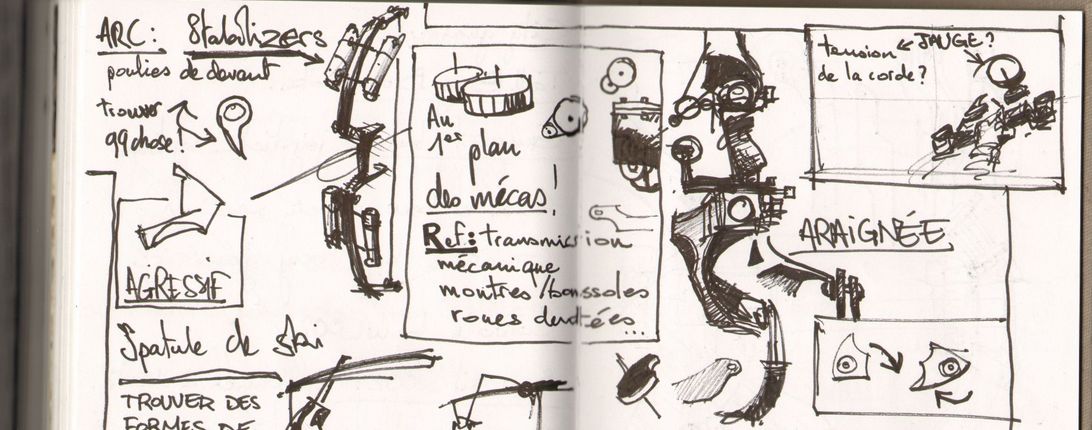 ARC: Stabilizers
poulies de devant
trouver
qqchose!
AGRESSIF
Spatule de ski
TROUVER DES
FORMES DE
Au
1er plan
des mécas!
Ref: transmission
mécanique
montres/boussoles
roues dentées...
tension ← JAUGE?
de la corde?
ARAIGNÉE